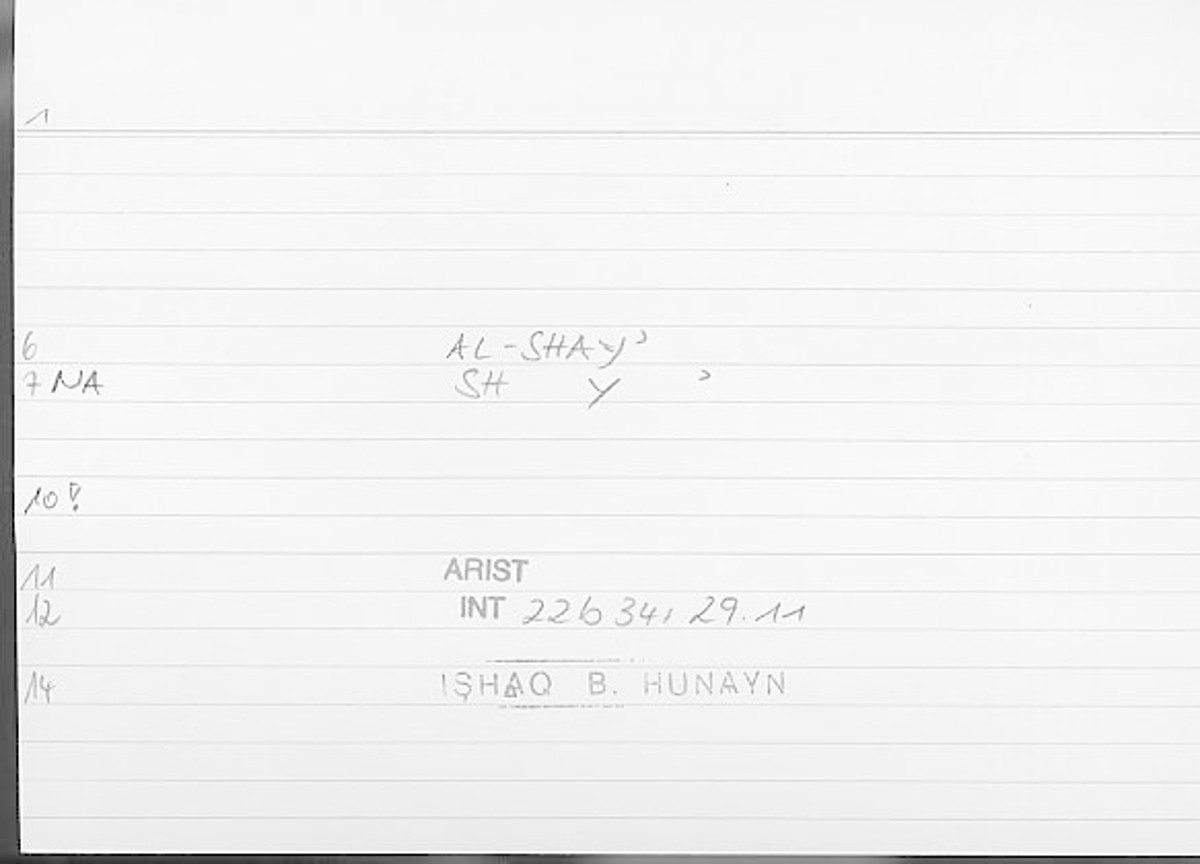 1
6 AL-SHAYʾ
7 NA SH Y ʾ
10!
11 ARIST
12 INT 22b 34, 29.11
14 IṢHAQ B. HUNAYN